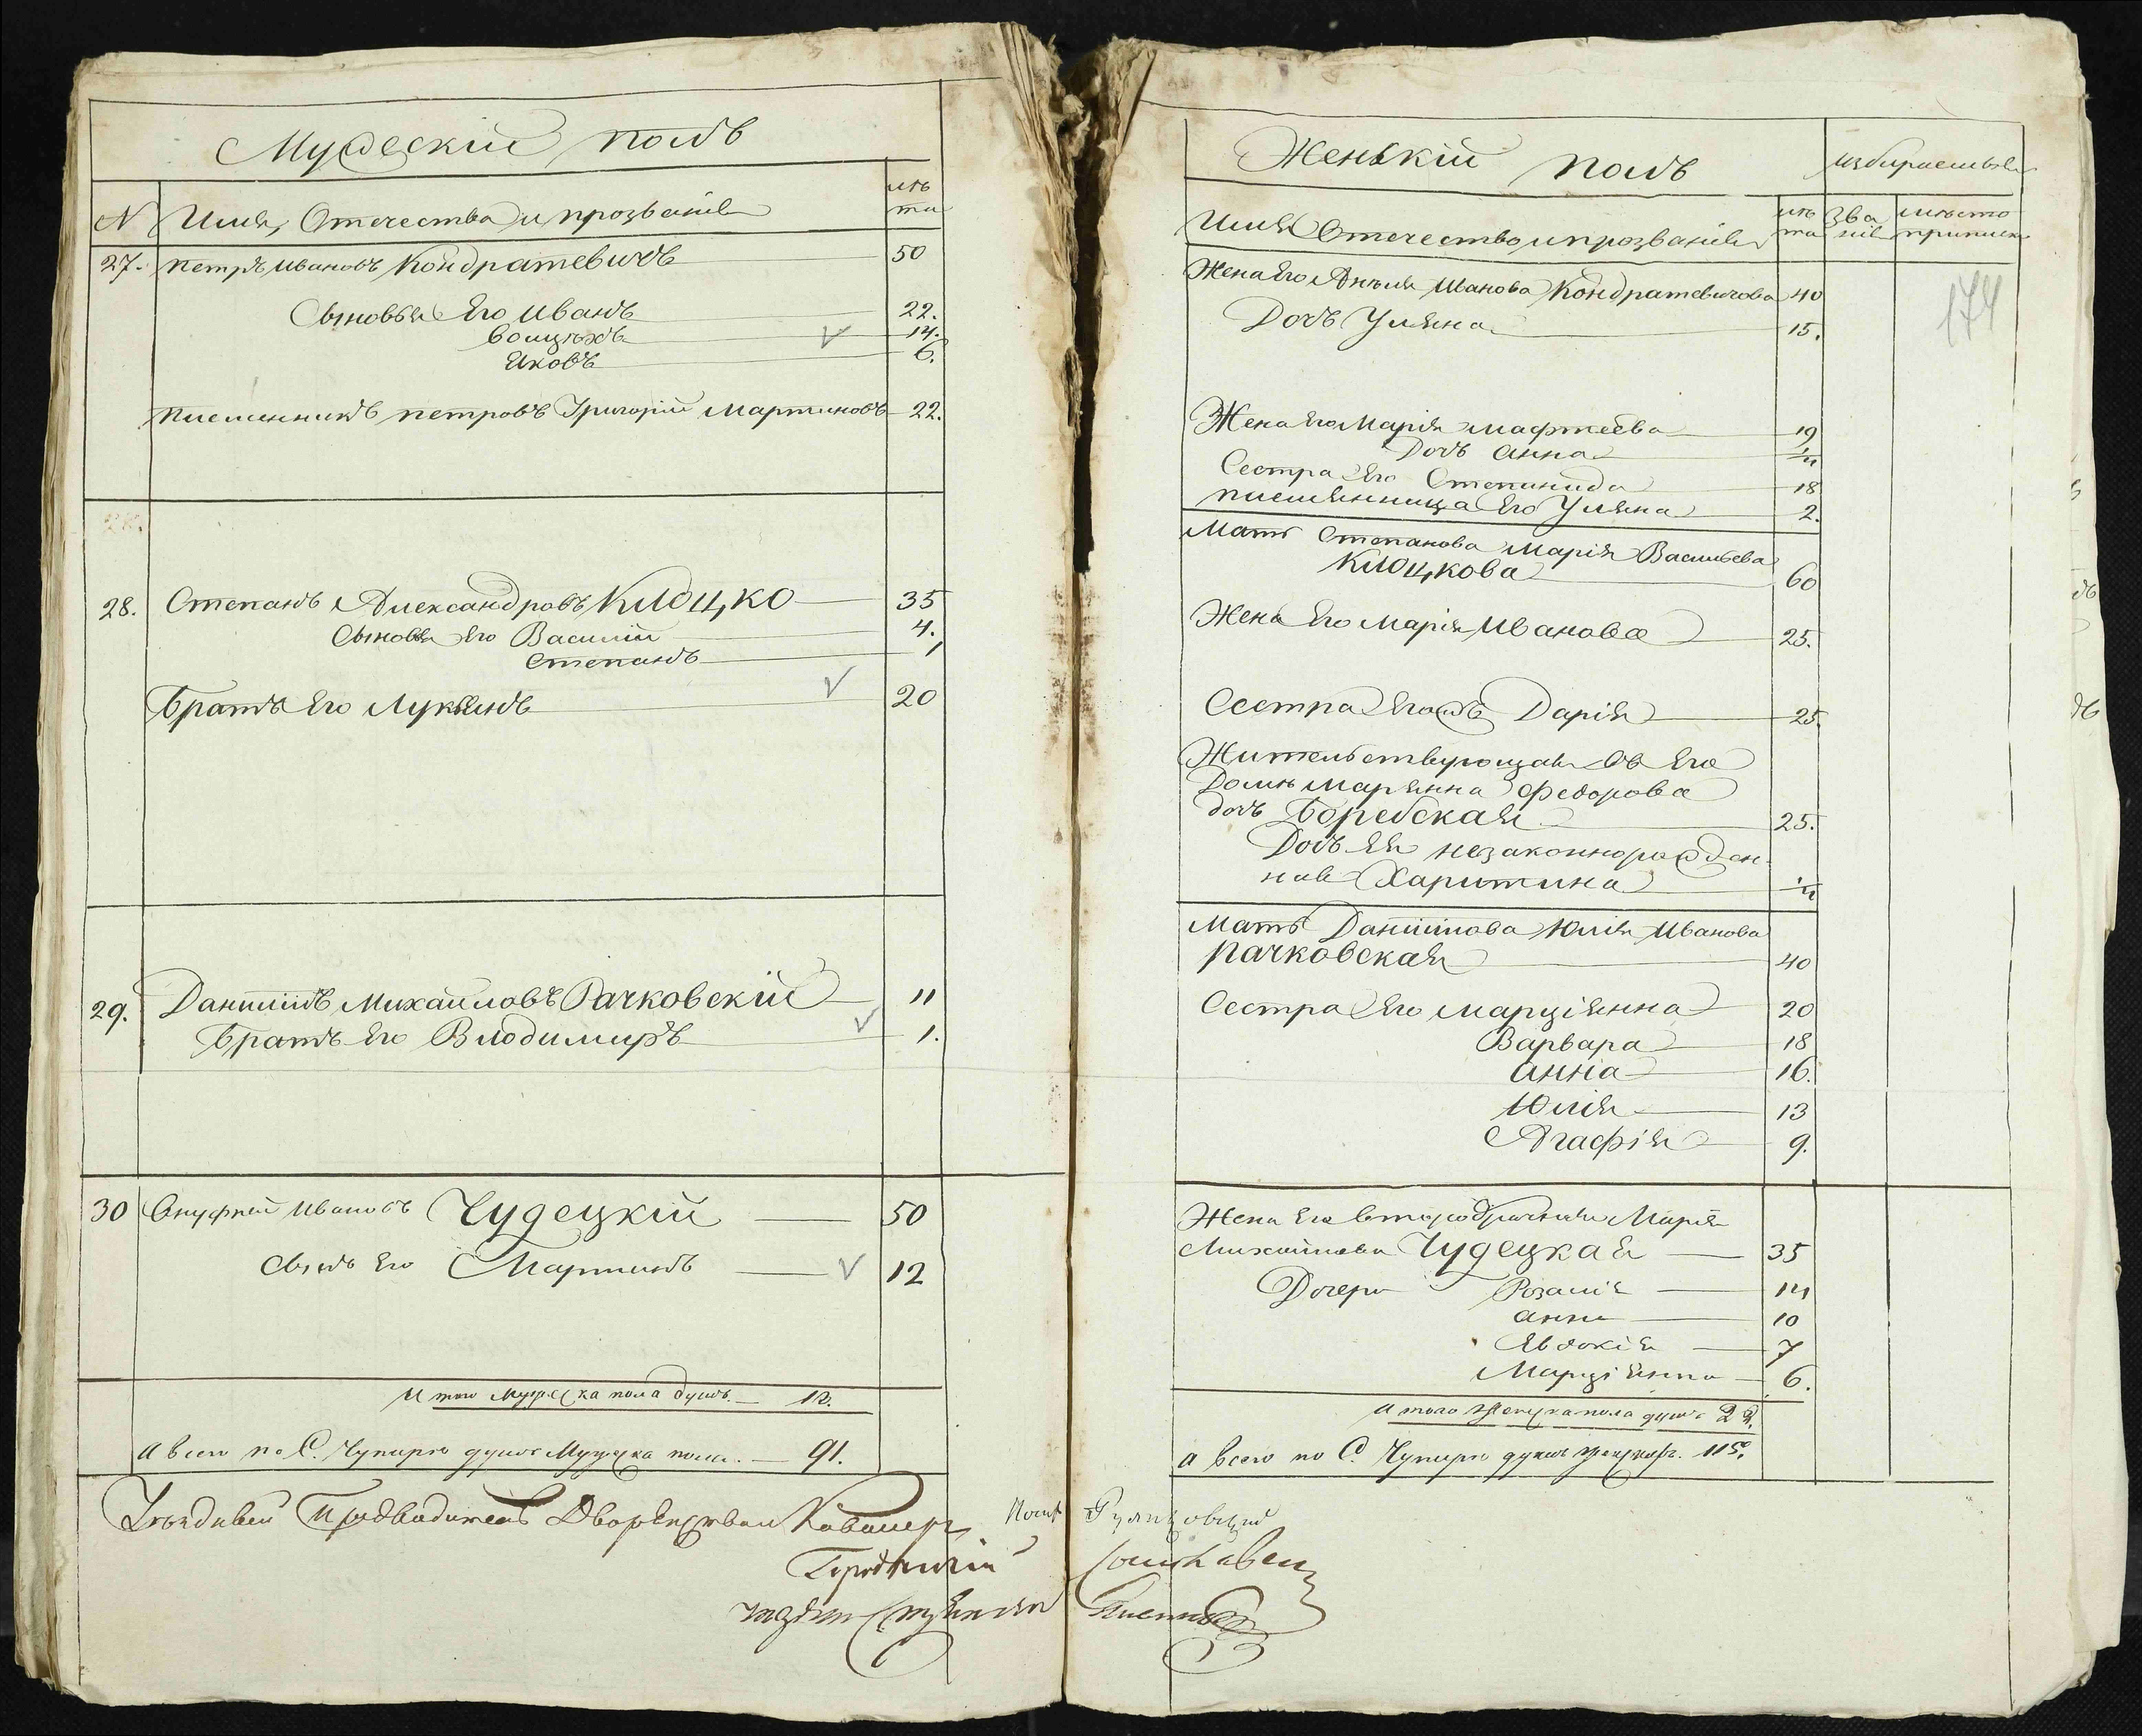 Мужескій полъ
N Имя, Отечества и прозваніе лѣ
та
27. петръ Ивановъ Кондратевичъ 50
Сыновья Его Иванъ 22.
Войцѣхъ 14.
Яковъ 6.
племянникъ петровъ Григорій Мартиновъ 22.
28. Степанъ Александровъ Клюцко 35
Сыновя Его Василій 4.
Степанъ 1
Братъ Его Лукьянъ 20
29. Даніилъ Михайловъ Рачковскій 11
братъ Его Влодимиръ 1.
30 Онуфрей Ивановъ Чудецкій 50
Сынъ Его Мартинъ 12
Итого Мужеска пола душъ 12.
А всего по С. Чупирѣ душъ Мужеска пола 91.
Предводитель Дворянства и Кавалеръ
Женскій полъ
Имя Отечество и прозваніе лѣ
та Зва
ніе мѣсто
приписки
174
Жена Его Анѣля Иванова Кондратевичова 40
Дочъ Уляна 15.
Жена Его Марія Мафтеева 19
Дочъ Анна
Сестра Его Степанида 18
племянница Его Уляна 2.
Мать Степанова Марія Васильева
Клюцкова 60
Жена Его Марія Иванова 25.
Сестра Егожъ Дарія 25.
Жительствующая въ Его
Домѣ Маріянна Федорова
дочъ Боревская 25.
Дочъ Ея незаконнорожден-
ная Харитина
Мать Даніилова Юлія Иванова
Рачковская 40
Сестра Его Марціянна 20
Варвара 18
Анна 16.
Юлія 13
Агафія 9.
Жена Его второбрачная Марія
Михайлова Чудецкая 35
Дочери Розалія 14
Анна 10
Явдокія 7
Марціянна 6.
Итого Женска пола душъ 22.
А всего по С. Чупирѣ душъ 115.